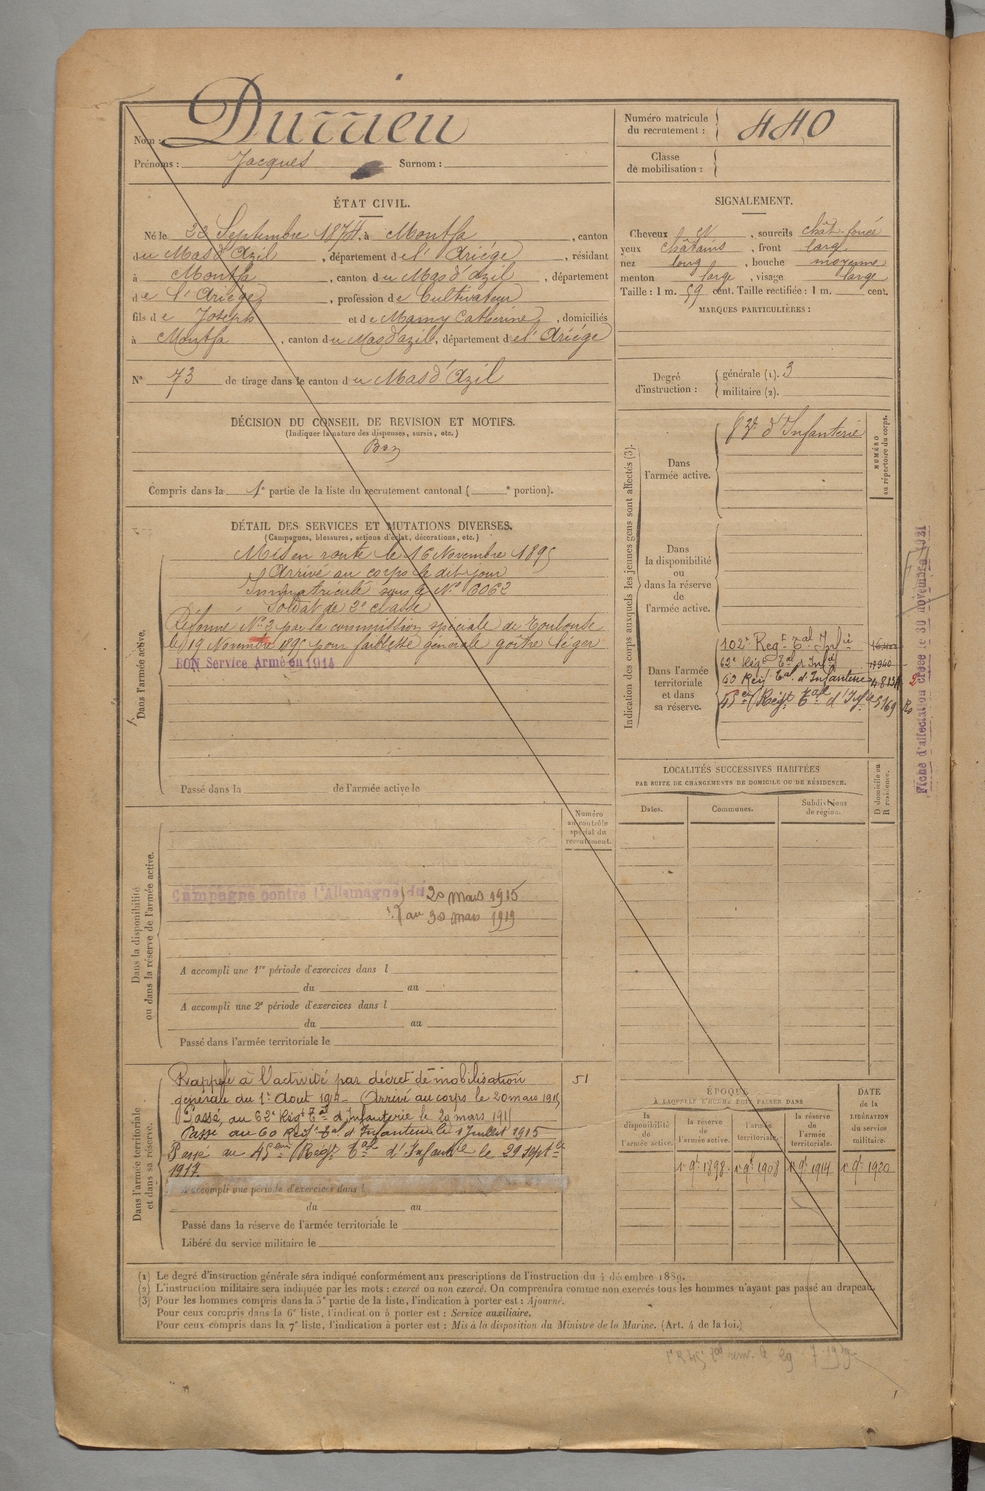 Nom : Durrieu
Prénoms : Jacques Surnom :
Numéro matricule du recrutement : 440
Classe de mobilisation :
ÉTAT CIVIL.
Né le Septembre 1874, à Montfa, canton
du Mas d'Azil, département de l'Ariège, résidant
à Montfa, canton du Mas d'Azil, département
de l'Ariège, profession de Cultivateur
fils de Joseph et de Mamy Catherine, domiciliés
à Montfa, canton du Mas d'azil, département de l'Ariège
N° 73 de tirage dans le canton du Mas d'Azil
SIGNALEMENT.
Cheveux id, sourcils chât-foncé
yeux chatains, front large
nez long, bouche moyenne
menton large, visage large
Taille : 1 m. 59 cent. Taille rectifiée : 1 m. cent.
MARQUES PARTICULIÈRES :
Degré d'instruction : générale (1). 3
militaire (2).
DÉCISION DU CONSEIL DE REVISION ET MOTIFS.
(Indiquer la nature des dispenses, sursis, etc.)
Bon
Compris dans la 1e partie de la liste du recrutement cantonal ( e portion).
DÉTAIL DES SERVICES ET MUTATIONS DIVERSES.
(Campagnes, blessures, actions d'éclat, décorations, etc.)
Dans l'armée active.
Mis en route le 16 Novembre 1895
Arrivé au corps le dit jour
Immatriculé sous le N° 6062
Soldat de 2e classe
Réformé N° 2 par la commission spéciale de Toulouse
le 19 Novembre 1895 pour faiblesse générale goître léger
BON Service Armé en 1914
Passé dans la de l'armée active le
Dans la disponibilité ou dans la réserve de l'armée active.
Numéro au contrôle spécial du recrutement.
Campagne contre l'Allemagne du 20 mars 1915
au 30 mars 1919
A accompli une 1re période d'exercices dans l
du au
A accompli une 2e période d'exercices dans l
du au
Passé dans l'armée territoriale le
Dans l'armée territoriale et dans sa réserve.
Rappelé à l'activité par décret de mobilisation 51
générale du 1er Aout 1914 - Arrivé au corps le 20 mars 1915
Passé au 62e Régt Tal d'Infanterie le 20 mars 1915
Passé au 60 Regt Tal d'Infanterie le 1 Juillet 1915
Passé au 45eme Régt Tal d'Infantie le 29 Septbre
1917.
A accompli une période d'exercices dans l
du au
Passé dans la réserve de l'armée territoriale le
Libéré du service militaire le
Indication des corps auxquels les jeunes gens sont affectés (3).
NUMÉRO au répertoire du corps.
Dans l'armée active. 83e d'Infanterie
Dans la disponibilité ou dans la réserve de l'armée active.
Dans l'armée territoriale et dans sa réserve.
102e Regt Tal Infie
62e Régt Tal d'Infie 17940
60 Regt Tal d'Infanterie 4813
45e Régt Tal d'Infie 5169
Fiche d'affectation close le 30 novembre 1921
LOCALITÉS SUCCESSIVES HABITÉES
PAR SUITE DE CHANGEMENTS DE DOMICILE OU DE RÉSIDENCE.
Dates. Communes. Subdivisions de région. D domicile ou R résidence.
ÉPOQUE
À LAQUELLE L'HOMME DOIT PASSER DANS
DATE de la LIBÉRATION du service militaire.
la disponibilité de l'armée active. la réserve de l'armée active. l'armée territoriale. la réserve de l'armée territoriale.
1er 9bre 1898 1er 9bre 1908 1er 9bre 1914 1er 9bre 1920
(1) Le degré d'instruction générale séra indiqué conformément aux prescriptions de l'instruction du 4 décembre 1889.
(2) L'instruction militaire sera indiquée par les mots : exercé ou non exercé. On comprendra comme non exercés tous les hommes n'ayant pas passé au drapeau.
(3) Pour les hommes compris dans la 5e partie de la liste, l'indication à porter est : Ajourné.
Pour ceux compris dans la 6e liste, l'indication à porter est : Service auxiliaire.
Pour ceux compris dans la 7e liste, l'indication à porter est : Mis à la disposition du Ministre de la Marine. (Art. 4 de la loi.)